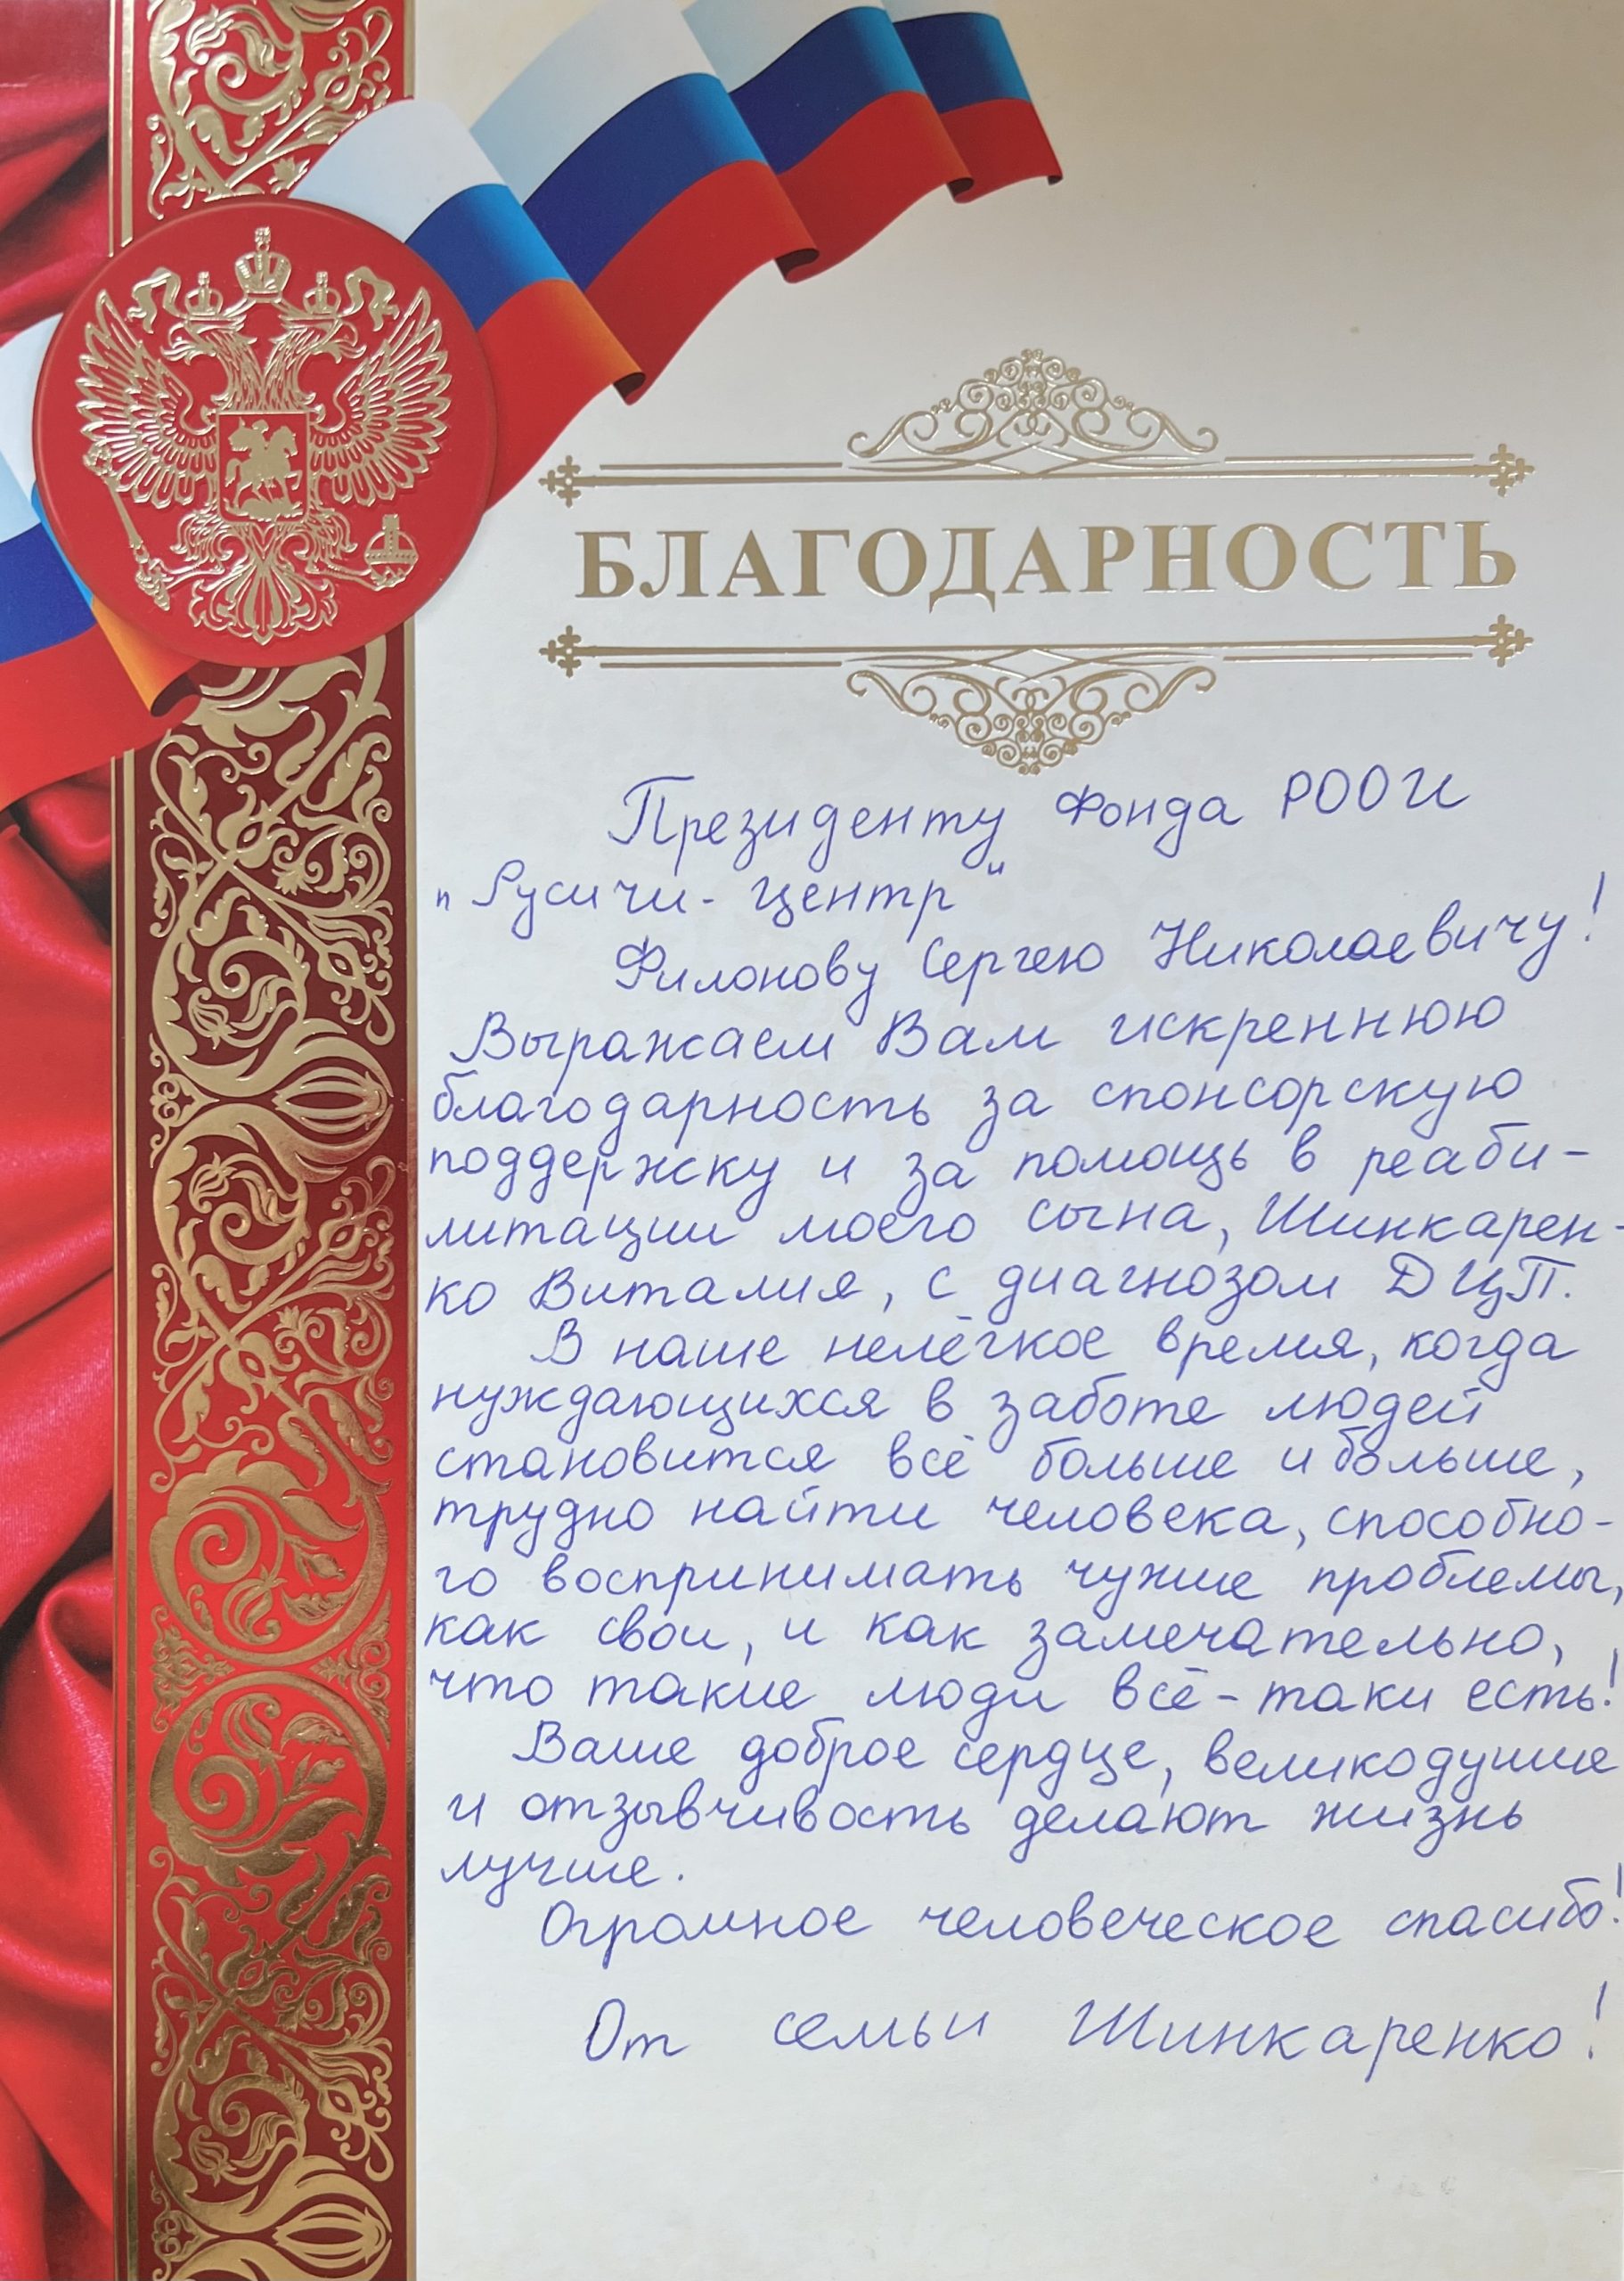 БЛАГОДАРНОСТЬ
Президенту Фонда РООИ
„Русичи-центр“
Филонову Сергею Николаевичу!
Выражаем Вам искреннюю
благодарность за спонсорскую
поддержку и за помощь в реаби-
литации моего сына, Шинкарен-
ко Виталия, с диагнозом ДЦП.
В наше нелёгкое время, когда
нуждающихся в заботе людей
становится всё больше и больше,
трудно найти человека, способно-
го воспринимать чужие проблемы,
как свои, и как замечательно,
что такие люди всё-таки есть!
Ваше доброе сердце, великодушие
и отзывчивость делают жизнь
лучше.
Огромное человеческое спасибо!
От семьи Шинкаренко!